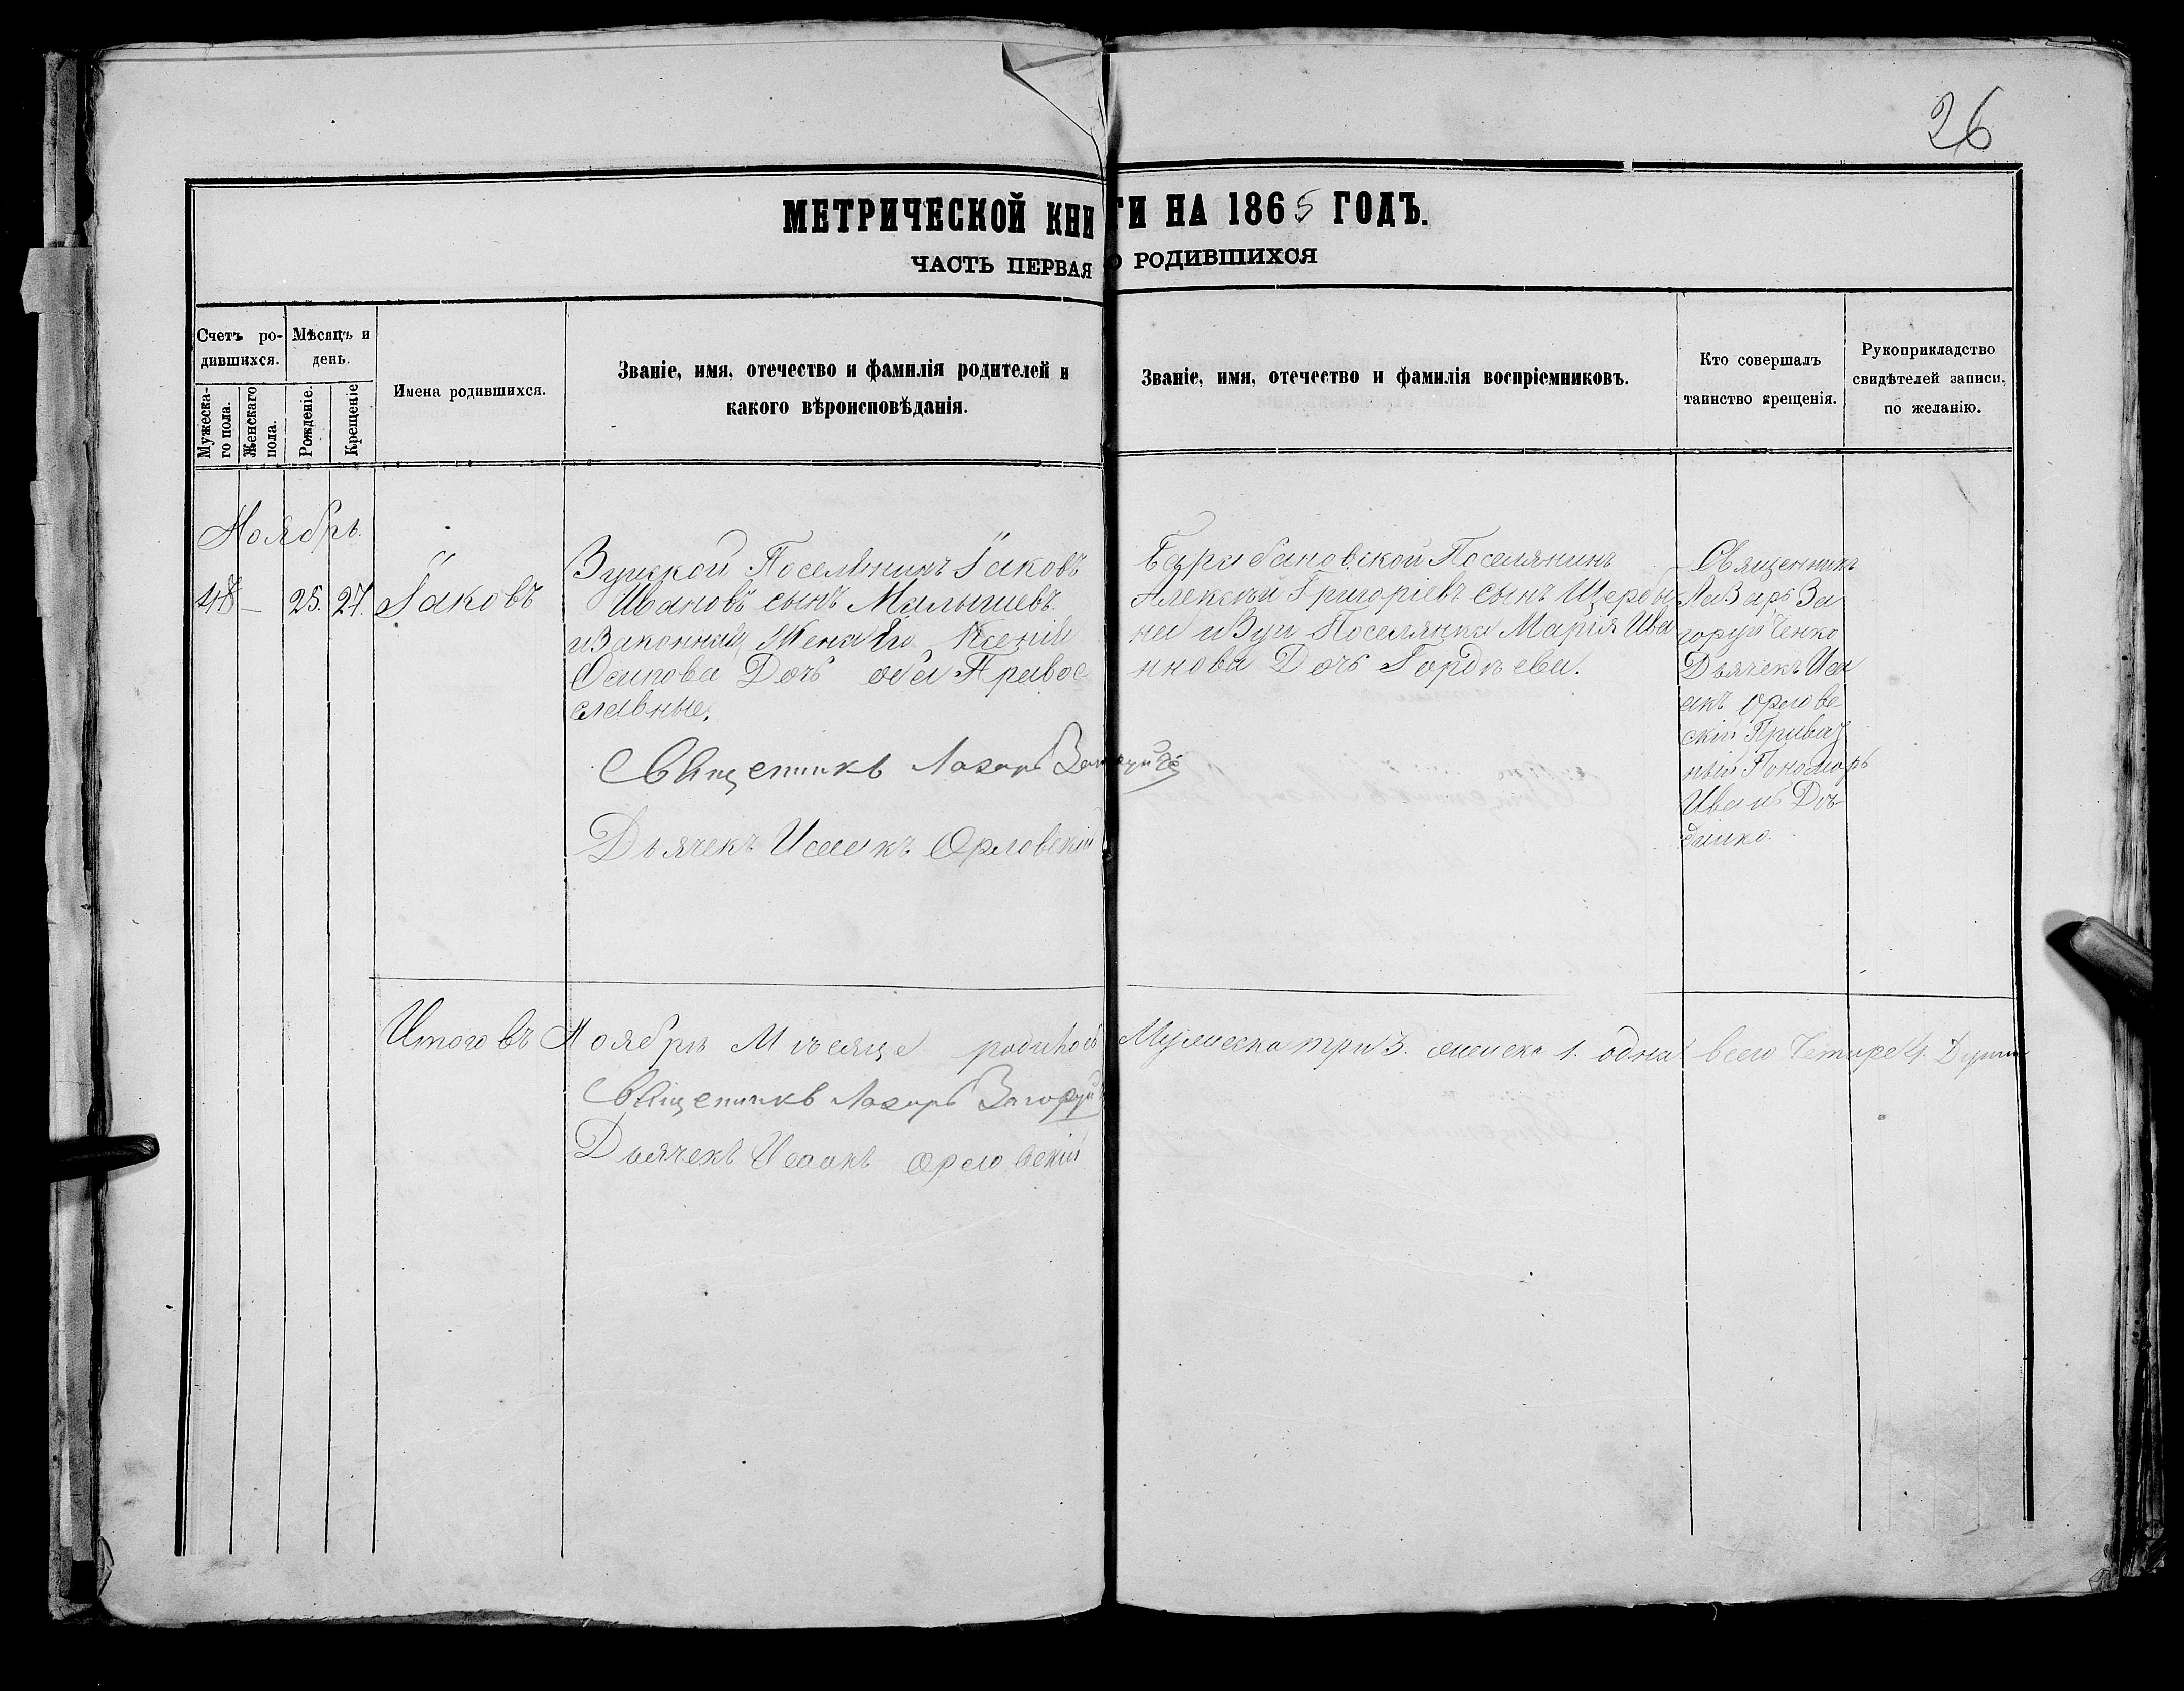 26
МЕТРИЧЕСКОЙ КНИГИ НА 1865 ГОДЪ.
ЧАСТЬ ПЕРВАЯ О РОДИВШИХСЯ
Счетъ ро-
дившихся.
Мужеска-
го пола.
Женскаго
пола.
Мѣсяцъ и
день.
Рожденіе.
Крещеніе
Имена родившихся.
Званіе, имя, отечество и фамилія родителей и
какого вѣроисповѣданія.
Званіе, имя, отечество и фамилія воспріемниковъ.
Кто совершалъ
таинство крещенія.
Рукоприкладство
свидѣтелей записи,
по желанію.
Ноябрь.
— 25. 27. Іаковъ
Зуйской Поселянинъ Іаковъ
Ивановъ сынъ Малышевъ.
и Законная Жена Его Ксенія
Осипова Дочь оба Право
славные.
Священникъ Лазарь
Дьячекъ Исаакъ Орловскій
Барабановской Поселянинъ
Алексѣй Григоріевъ сынъ Щерба
на и Зуи Поселянка Марія Ива
ннова Дочь Гордѣева.
Священникъ
Лазарь За
горуйченко
Дьячекъ Иса
акъ Орлов
скій
ный Пономарь
Иванъ
Итого въ Ноябрѣ Мѣсяце Мужеска три 3. женска 1. одна всего Четыре 4.
Священникъ Лазарь Загоруй
Дьячекъ Исаакъ Орловскій